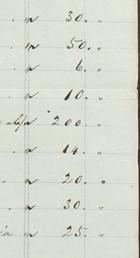 " 30. "
" 50. "
" 6. "
" 10. "
" 200 "
" 14. "
" 20. "
" 30. "
" 25. "